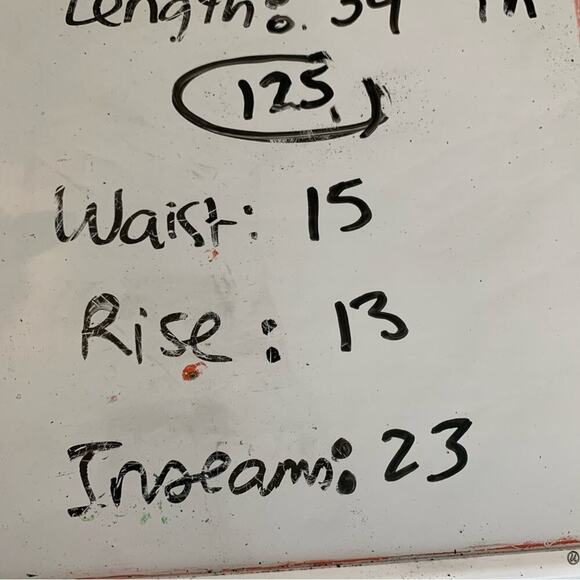 Length: 34 in
125
Waist: 15
Rise: 13
Inseams: 23